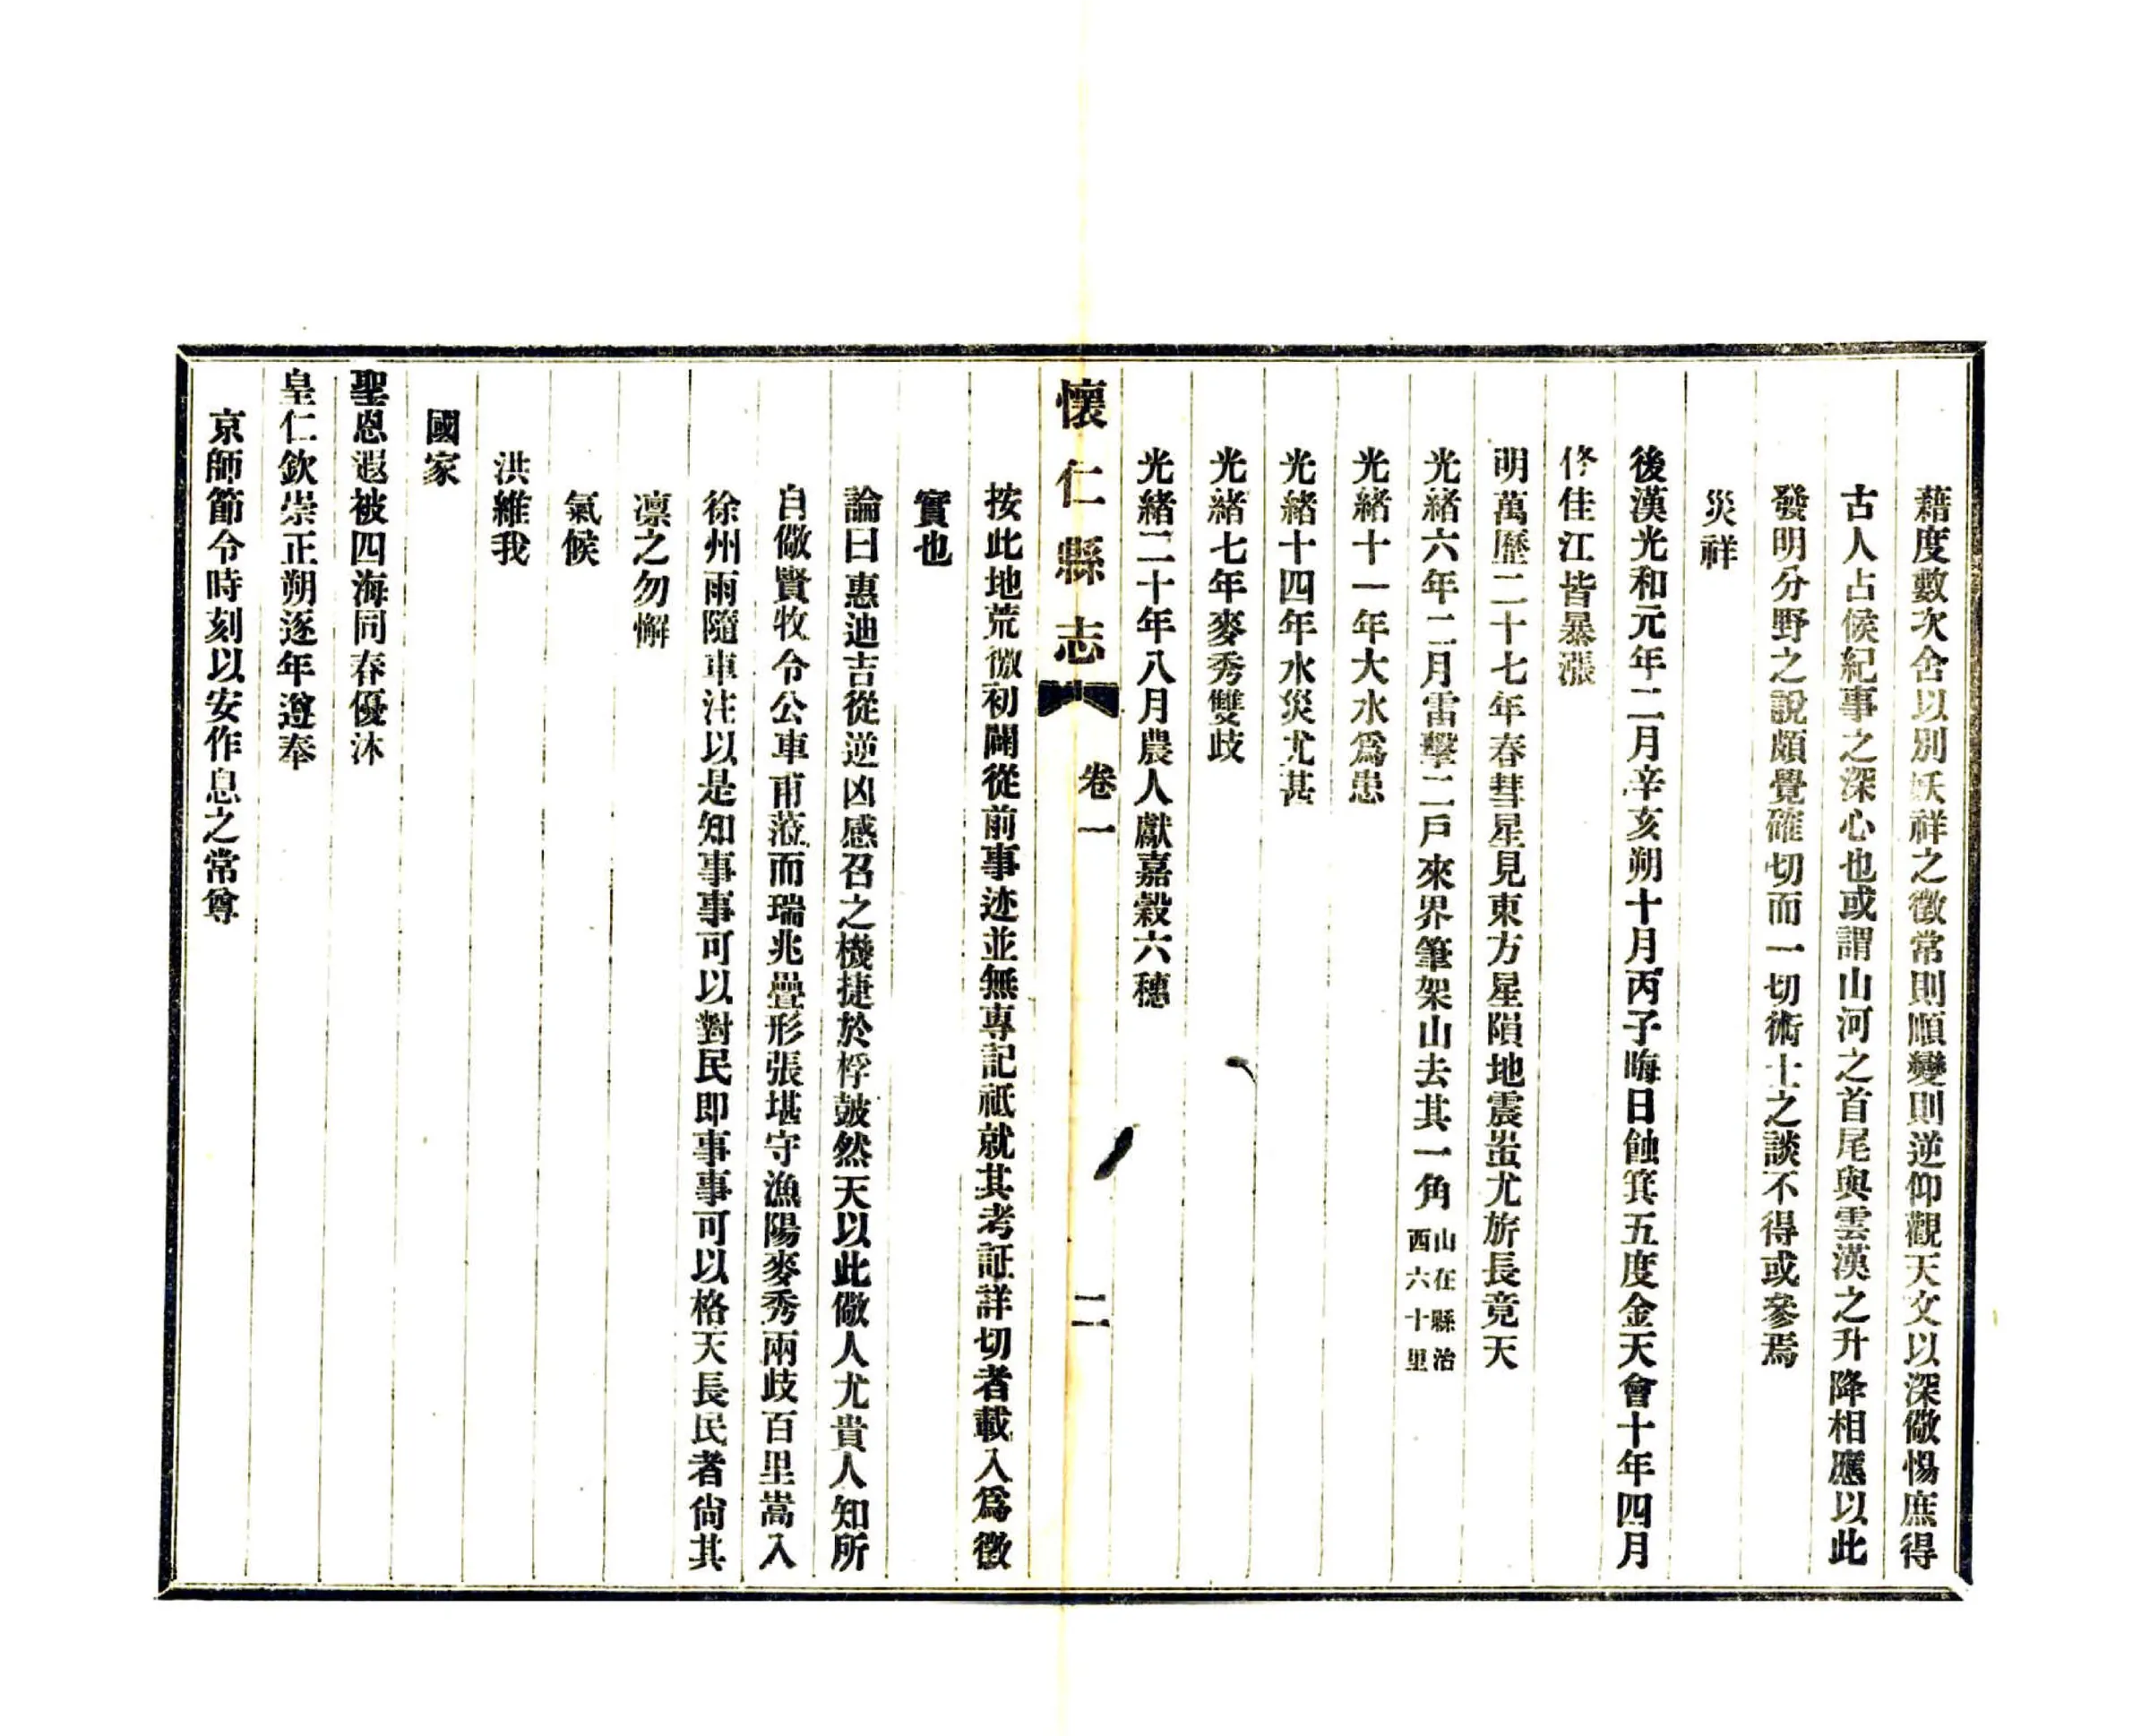 藉度數次舍以別妖祥之徵常則順變則逆仰觀天文以深儆惕庶得
古人占侯紀事之深心也或謂山河之首尾與雲漢之升降相應以此
發明分野之說頗覺確切而一切術士之談不得或參焉
災祥
後漢光和元年二月辛亥朔十月丙子晦日蝕箕五度金天會十年四月
佟佳江皆暴漲
明萬歷二十七年春彗星見東方星隕地震蚩尤旂長竟天
光緒六年二月雷擊二戶來界筆架山去其一角山在縣治西六十里
光緒十一年大水爲患
光緒十四年水災尤甚
光緒七年麥秀雙歧
光緒二十年八月農人獻嘉穀六穗
懷仁縣志 卷一 二
按此地荒徼初闢從前事迹並無專記祗就其考証詳切者載入爲徵
實也
論曰惠迪吉從逆凶感召之機捷於桴鼓然天以此儆人尤貴人知所
自儆賢牧令公車甫蒞而瑞兆疊形張堪守漁陽麥秀兩歧百里嵩入
徐州雨隨車注以是知事事可以對民即事事可以格天長民者尙其
凛之勿懈
氣候
洪維我
國家
聖恩遐被四海同春優沐
皇仁欽崇正朔逐年遵奉
京師節令時刻以安作息之常尊